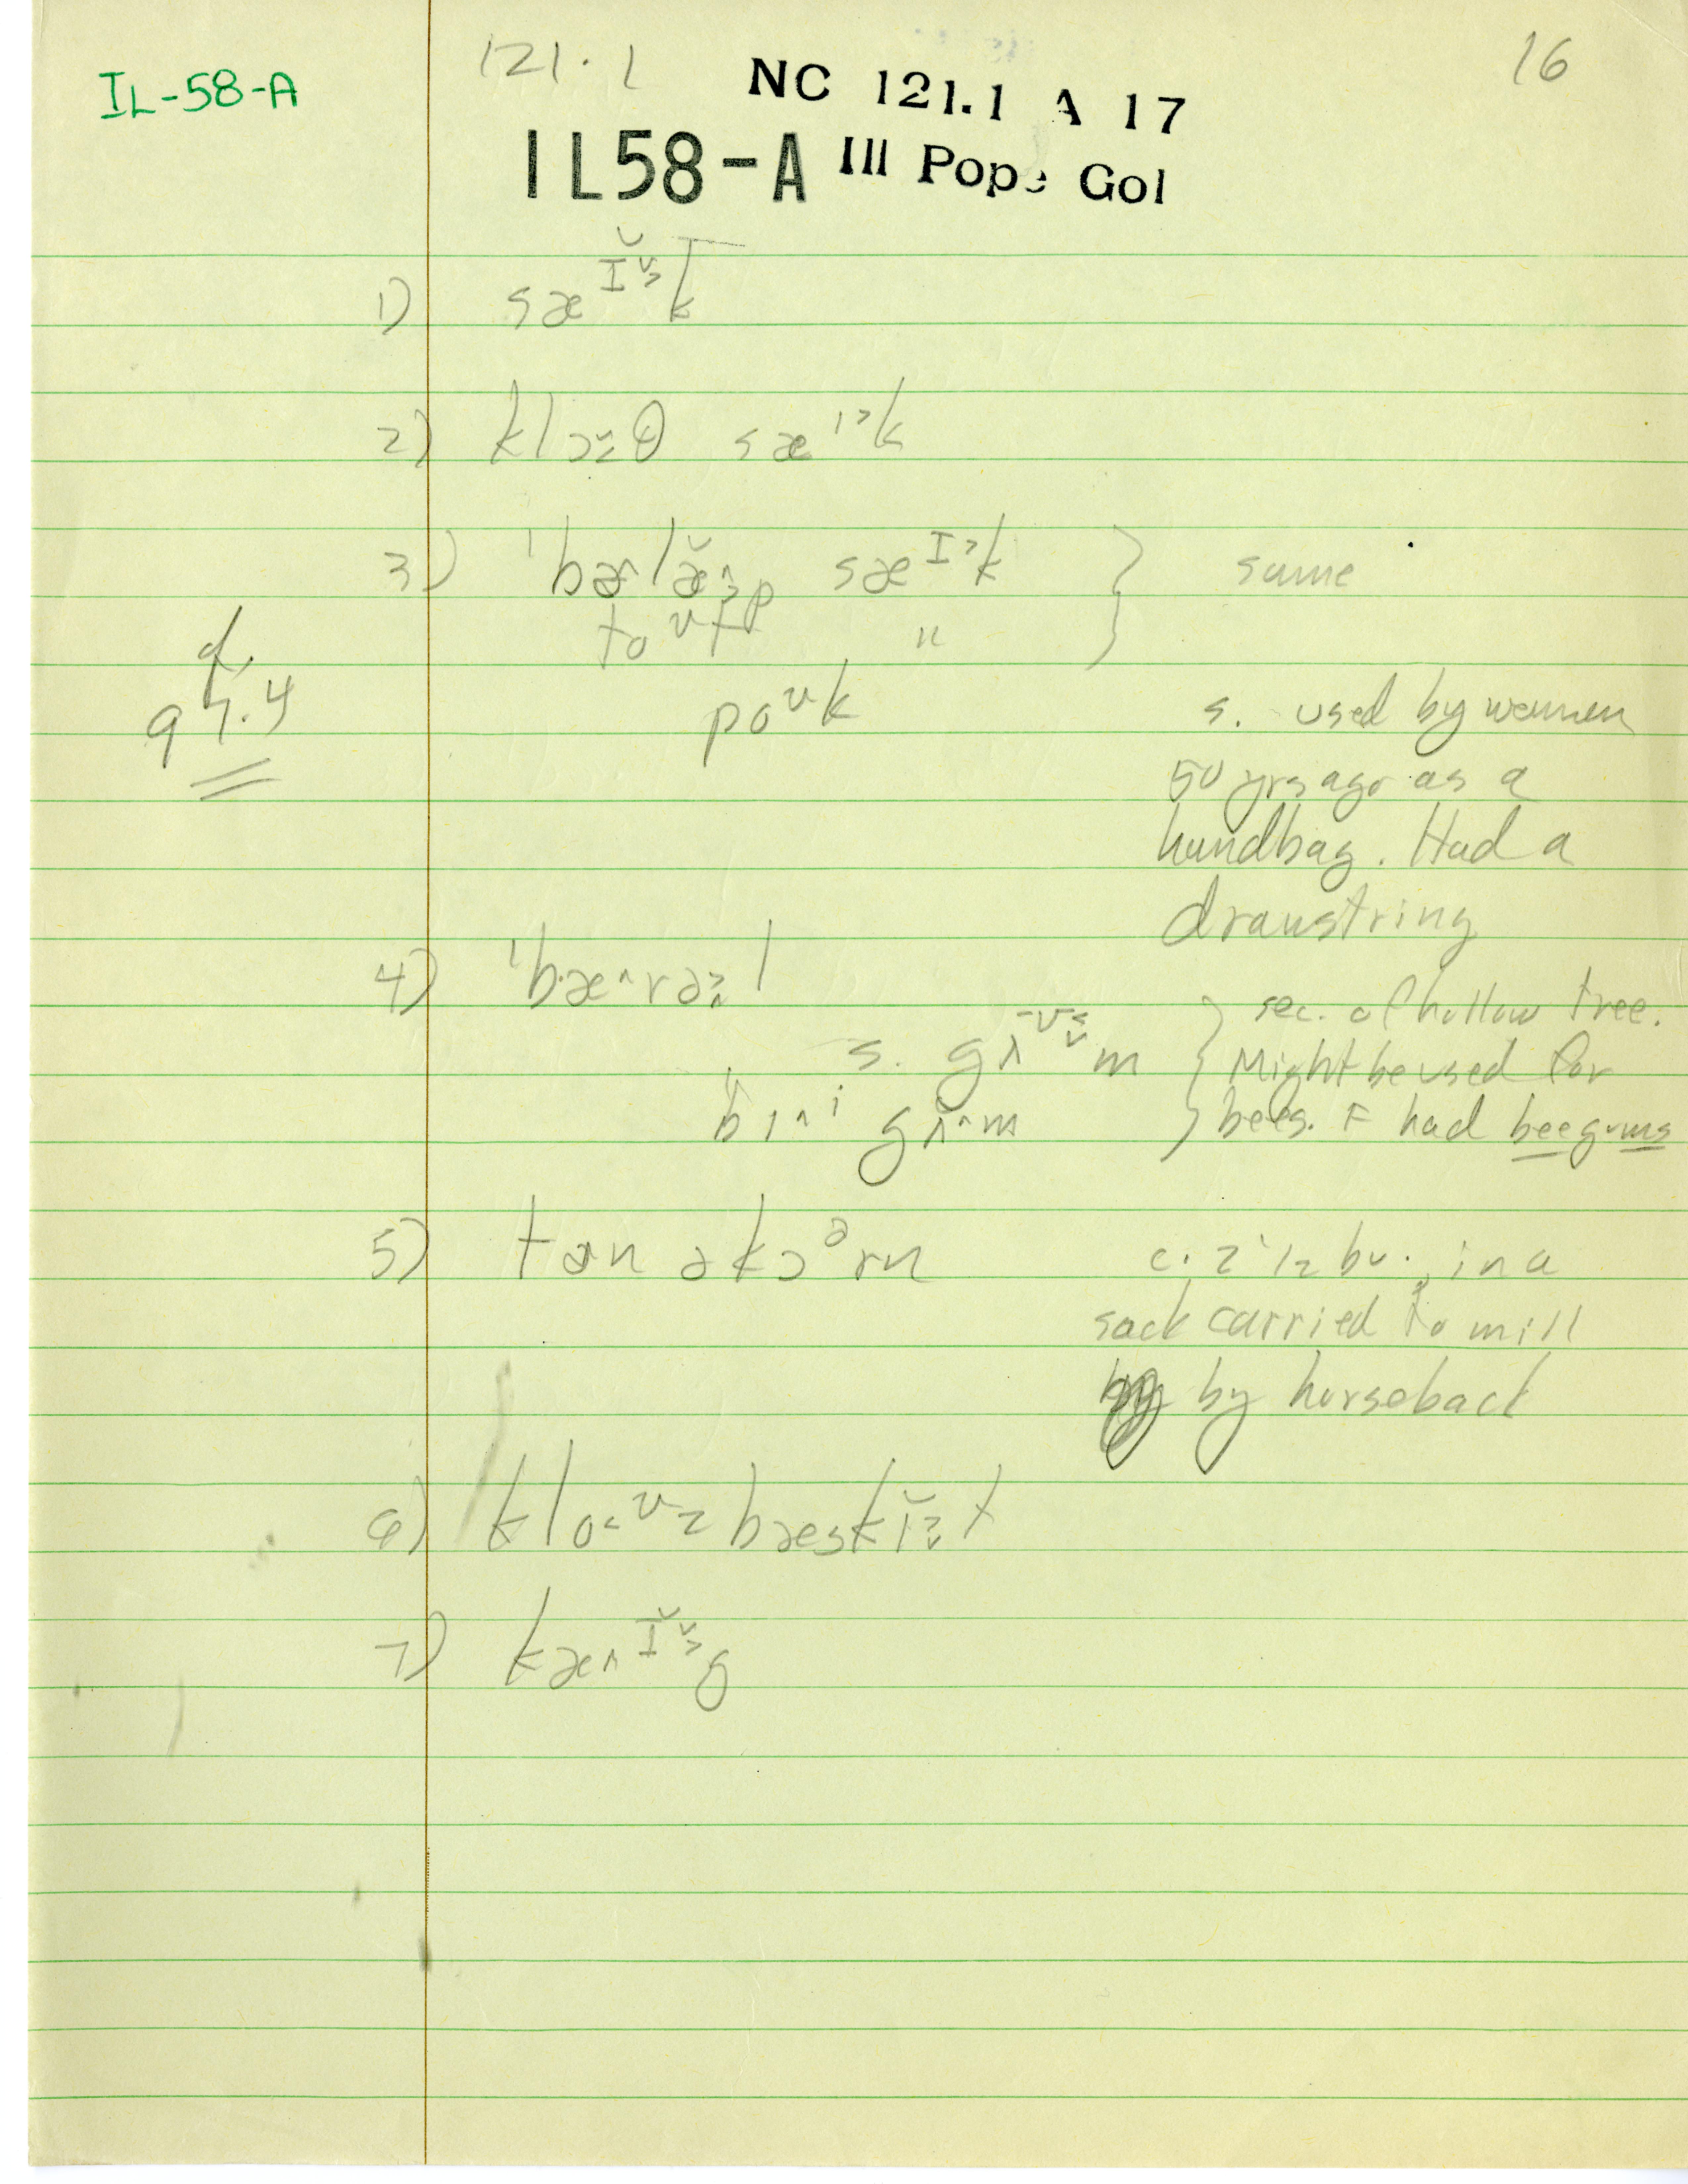 IL-58-A
121.1
NC 121.1 A 17
16
IL58-A Ill Pope Gol
1) sæɪ̆k
2) klɔθ sæɪk
3) 'bɚlæ̆p sæɪk } same
toʊt "
cf. 97.4
poʊk s. used by women
50 yrs ago as a
handbag. Had a
drawstring
4) 'bærəl
s. gʌm } sec. of hollow tree.
biⁱ gʌm } Might be used for
bees. F had beegums
5) tɚn əkɔᵊrn c. 2 1/2 bu., in a
sack carried to mill
by horseback
6) kloʊz bæskɪ̆t
7) kæɪ̆g